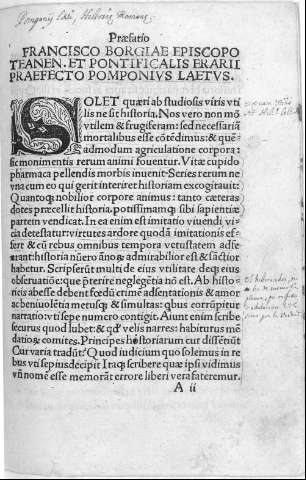 Pomponij Læti, Historia Romana
Præfatio
FRANCISCO BORGIAE EPISCOPO
TEANEN. ET PONTIFICALIS ERARII
PRAEFECTO POMPONIVS LAETVS.
SOLET quæri ab studiosis viris vti
lis ne sit historia. Nos vero non mõ
vtilem & frugiferam: sed necessariã
mortalibus esse cõtẽdimus: & quẽ
admodum agriculatione corpora:
sic monimentis rerum animi fouentur. Vitæ cupido
pharmaca pellendis morbis inuenit. Series rerum ne
vna cum eo qui gerit interiret historiam excogitauit:
Quantoq; nobilior corpore animus: tanto cæteras
dotes præcellit historia. potissimamq; sibi sapientiæ
partem vendicat. In ea enim est imitatio viuendi: vi
cia detestatur: virtutes ardore quodã imitationis ef-
fert & cũ rebus omnibus tempora vetustatem adfe-
rant: historia nũero ãnoꝝ admirabilior est & sãctior
habetur. Scripserũt multi de eius vtilitate deq; eius
obseruatiõe: que ptẽrire neglegẽtia nõ est. Ab histo
ricis abesse debent fœdũ crimẽ adsentationis & amor:
ac beniuolẽtia metusq; & simultas: qbus corrũpitur
narratio: vti sepe numero contigit. Aiunt enim scribe
securus quod lubet: & qđ velis narres: habiturus mẽ
datioꝝ comites. Principes historiarum cur dissẽtiũt
Cur varia tradũt? Quod iudicium quo solemus in re
bus vti sepius decipit Itaq; scribere quæ ipsi vidimus
vñ nomẽ esse memorãt errore liberi vera fateremur.
A ii